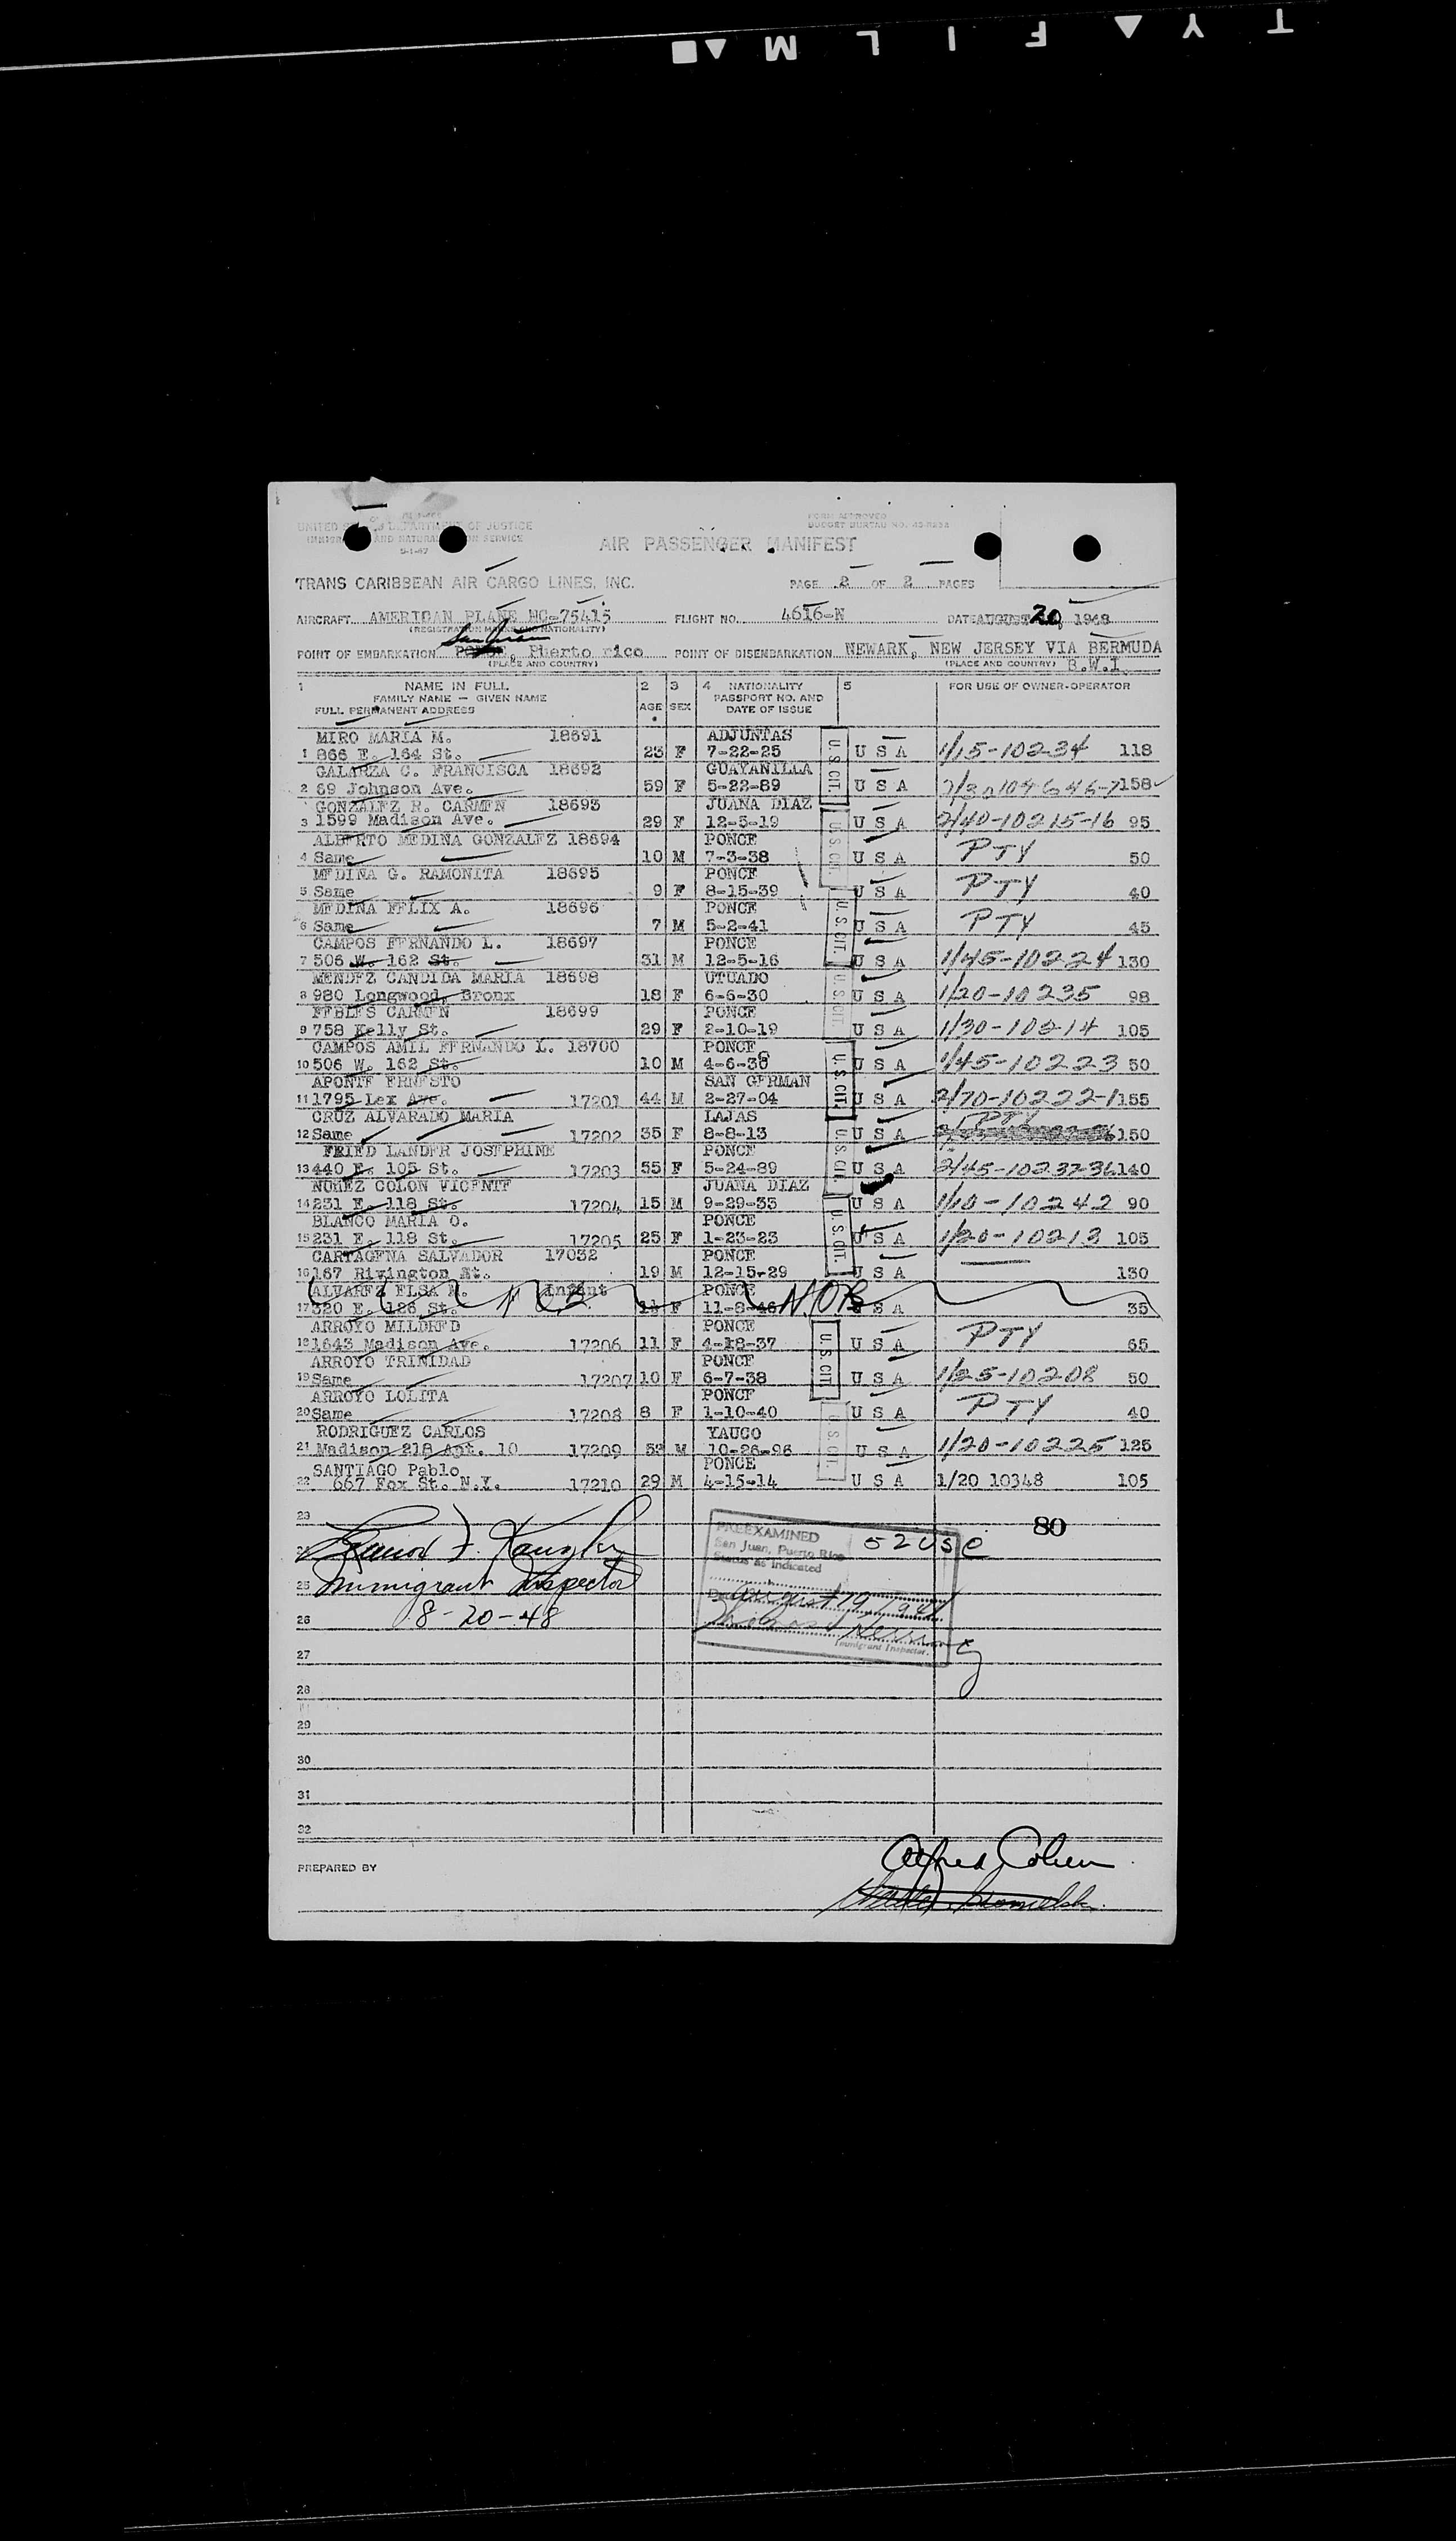 TY▲FILM▲■
UNITED STATES DEPARTMENT OF JUSTICE
IMMIGRATION AND NATURALIZATION SERVICE
9-1-47
FORM APPROVED
BUDGET BUREAU NO.
AIR PASSENGER MANIFEST
TRANS CARIBBEAN AIR CARGO LINES, INC.
PAGE 2 OF 2 PAGES
AIRCRAFT AMERICAN PLANE NC-75415 FLIGHT NO. 4616-N DATE AUGUST 20, 1948
(REGISTRATION MARKS AND NATIONALITY)
San Juan
POINT OF EMBARKATION PONCE, Puerto rico POINT OF DISEMBARKATION NEWARK, NEW JERSEY VIA BERMUDA
(PLACE AND COUNTRY) (PLACE AND COUNTRY) B.W.I
1 NAME IN FULL 2 3 4 NATIONALITY 5 FOR USE OF OWNER-OPERATOR
FAMILY NAME — GIVEN NAME PASSPORT NO. AND
FULL PERMANENT ADDRESS AGE SEX DATE OF ISSUE
MIRO MARIA M. 18691 ADJUNTAS
1 866 E. 164 St. 23 F 7-22-25 U S A 1/15-10234 118
GALARZA C. FRANCISCA 18692 GUAYANILLA
2 69 Johnson Ave. 59 F 5-22-89 U S A 158
GONZALEZ R. CARMEN 18693 JUANA DIAZ
3 1599 Madison Ave. 29 F 12-5-19 U S A 2/40-10215-16 95
ALBERTO MEDINA GONZALEZ 18694 PONCE
4 Same 10 M 7-3-38 U S A PTY 50
MEDINA G. RAMONITA 18695 PONCE
5 Same 9 F 8-15-39 U S A PTY 40
MEDINA FELIX A. 18696 PONCE
6 Same 7 M 5-2-41 U S A PTY 45
CAMPOS FERNANDO L. 18697 PONCE
7 506 W. 162 St. 31 M 12-5-16 U S A 1/45-10224 130
MENDEZ CANDIDA MARIA 18698 UTUADO
8 980 Longwood, Bronx 18 F 6-6-30 U S A 1/20-10235 98
FEBLES CARMEN 18699 PONCE
9 758 Kelly St. 29 F 2-10-19 U S A 1/30-10214 105
CAMPOS AMIL FERNANDO L. 18700 PONCE
10 506 W. 162 St. 10 M 4-6-38 U S A 1/45-10223 50
APONTE ERNESTO SAN GERMAN
11 1795 Lex Ave. 17201 44 M 2-27-04 U S A 2/70-10222-1 155
CRUZ ALVARADO MARIA LAJAS PTY
12 Same 17202 35 F 8-8-13 U S A 150
FRIED LANDER JOSEPHINE PONCE
13 440 E. 105 St. 17203 55 F 5-24-89 U S A 2/45-10237-36 140
NUNEZ COLON VICENTE JUANA DIAZ
14 231 E. 118 St. 17204 15 M 9-29-33 U S A 1/10-10242 90
BLANCO MARIA O. PONCE
15 231 E. 118 St. 17205 25 F 1-23-23 U S A 1/20-10213 105
CARTAGENA SALVADOR 17032 PONCE
16 167 Rivington St. 19 M 12-15-29 U S A 130
ALVAREZ ELSA M. Infant PONCE
17 320 E. 126 St. N O B F 11-8-46 N.O.B U S A 35
ARROYO MILDRED PONCE
18 1643 Madison Ave. 17206 11 F 4-18-37 U S A PTY 65
ARROYO TRINIDAD PONCE
19 Same 17207 10 F 6-7-38 U S A 1/25-10208 50
ARROYO LOLITA PONCE
20 Same 17208 8 F 1-10-40 U S A PTY 40
RODRIGUEZ CARLOS YAUCO
21 Madison 218 Apt. 10 17209 52 M 10-26-96 U S A 1/20-10225 125
SANTIAGO Pablo PONCE
22 667 Fox St. N.Y. 17210 29 M 4-15-14 U S A 1/20 10348 105
U. S. CIT.
U. S. CIT.
U. S. CIT.
U. S. CIT.
U. S. CIT.
U. S. CIT.
U. S. CIT.
U. S. CIT.
U. S. CIT.
23
80
PREEXAMINED 52 USC
San Juan, Puerto Rico
Status as indicated
24
25 Immigrant Inspector
Date August 19, 1948
26 8-20-48
Immigrant Inspector.
27
28
29
30
31
32
PREPARED BY
Alfred Cohen